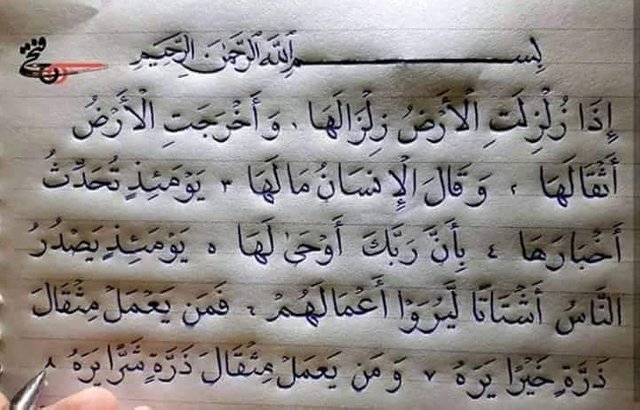 بســـــــــــــــــم ٱلله الرَّحْمٰنِ الرَّحِيمِ
إِذَا زُلْزِلَتِ الْأَرْضُ زِلْزَالَهَا ١ وَأَخْرَجَتِ الْأَرْضُ
أَثْقَالَهَا ٢ وَقَالَ الْإِنسَانُ مَا لَهَا ٣ يَوْمَئِذٍ تُحَدِّثُ
أَخْبَارَهَا ٤ بِأَنَّ رَبَّكَ أَوْحَىٰ لَهَا ٥ يَوْمَئِذٍ يَصْدُرُ
النَّاسُ أَشْتَاتًا لِّيُرَوْا أَعْمَالَهُمْ ٦ فَمَن يَعْمَلْ مِثْقَالَ
ذَرَّةٍ خَيْرًا يَرَهُ ٧ وَمَن يَعْمَلْ مِثْقَالَ ذَرَّةٍ شَرًّا يَرَهُ ٨